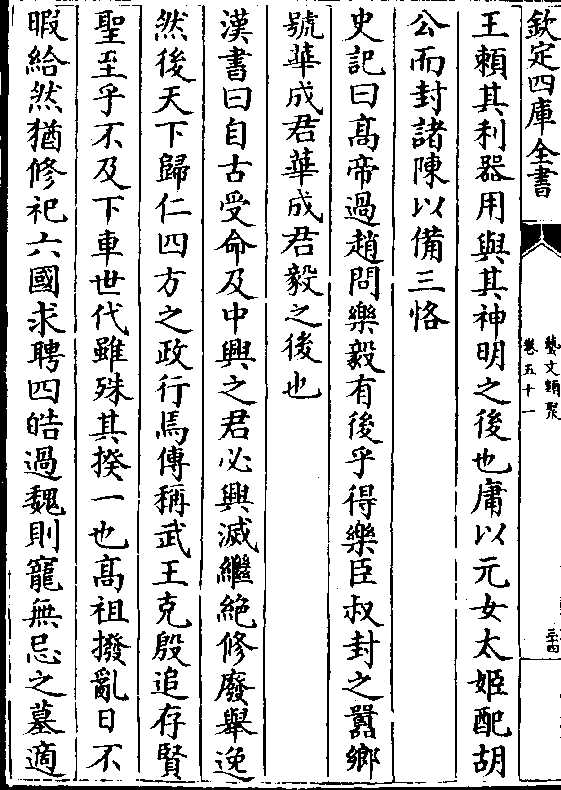 欽定四庫全書
藝文類聚
卷五十一
三十四
王頼其利器用與其神明之後也庸以元女太姬配胡
公而封諸陳以備三恪
史記曰髙帝過趙問樂毅有後乎得樂臣叔封之嚚鄉
號華成君華成君毅之後也
漢書曰自古受命及中興之君必興滅繼絶修廢舉逸
然後天下歸仁四方之政行焉傳稱武王克殷追存賢
聖至乎不及下車世代雖殊其揆一也髙祖撥亂日不
暇給然猶修祀六國求聘四皓過魏則寵無忌之墓適